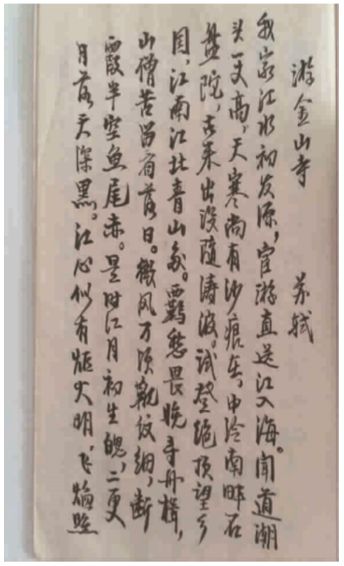 游金山寺 苏轼
我家江水初发源，宦游直送江入海。闻道潮
头一丈高，天寒尚有沙痕在，中泠南畔石
盘陀，古来出没随涛波。试登绝顶望乡
国，江南江北青山多。羁愁畏晚寻舟楫，
山僧苦留看落日。微风万顷靴纹细，断
霞半空鱼尾赤。是时江月初生魄，二更
月落天深黑。江心似有炬火明，飞焰照